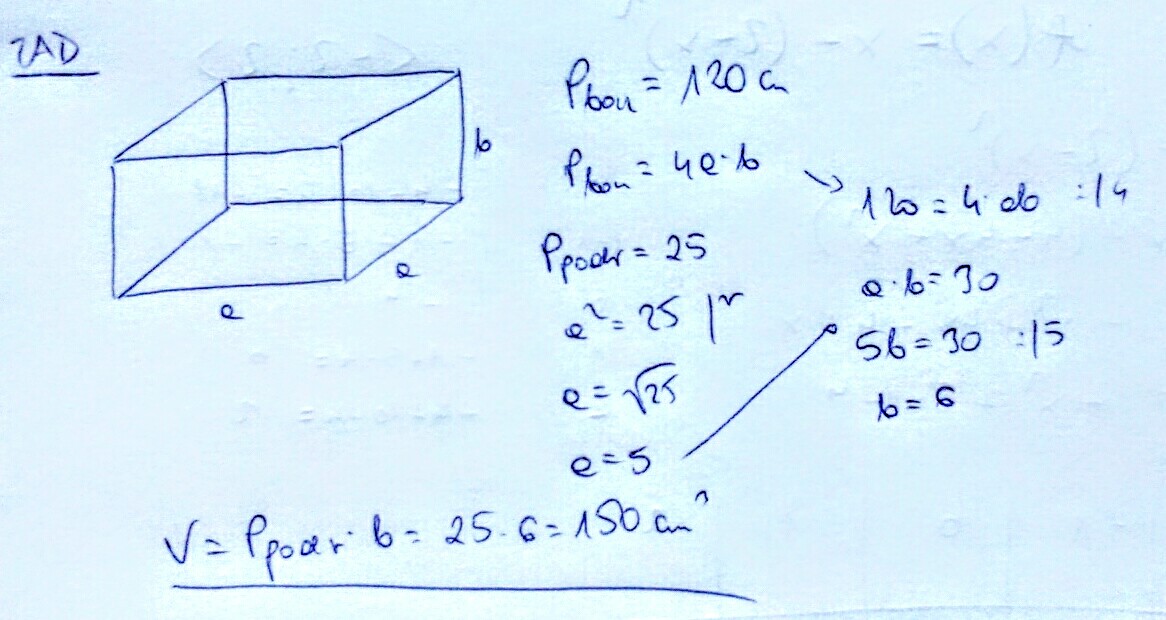 ZAD
b
a
a
Pbou = 120 cm
Pbou = 4a·b
Ppodst = 25
a² = 25 |√
a = √25
a = 5
120 = 4·ab :|4
a·b = 30
5b = 30 :|5
b = 6
V = Ppodst · b = 25·6 = 150 cm³